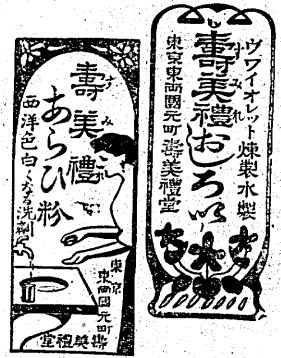 ヴワイオレット煉製水製
壽美禮おしろい
すみれ
東京東両國元町壽美禮堂
壽美禮
すみれ
あらひ粉
西洋色白くなる洗劑
東京
東両國元町
壽美禮堂